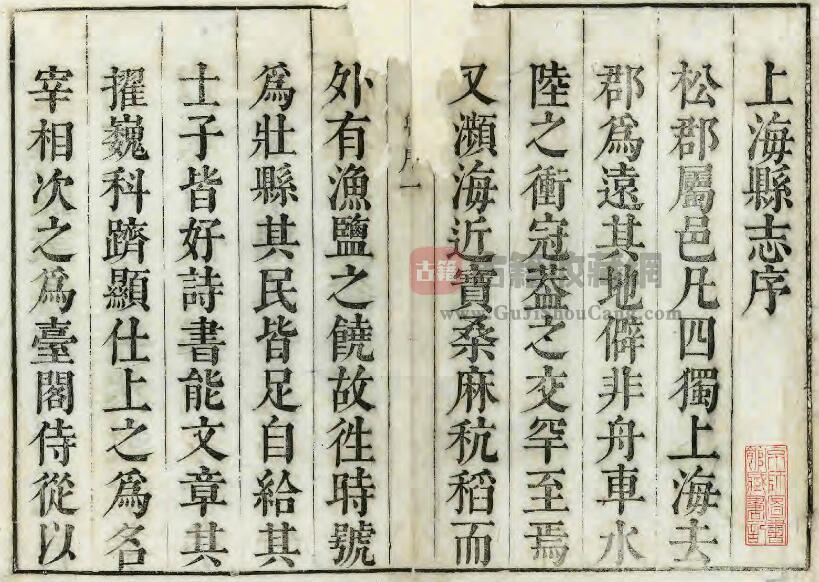 上海縣志序
松郡屬邑凡四獨上海去
郡爲遠其地僻非舟車水
陸之衝冠葢之交罕至焉
又瀕海近寶桑麻秔稻而
序一
外有漁鹽之饒故徃時號
爲壯縣其民皆足自給其
士子皆好詩書能文章其
擢巍科躋顯仕上之爲名
宰相次之爲臺閣侍從以
古籍
古籍收藏網
www.GuJiShouCang.com